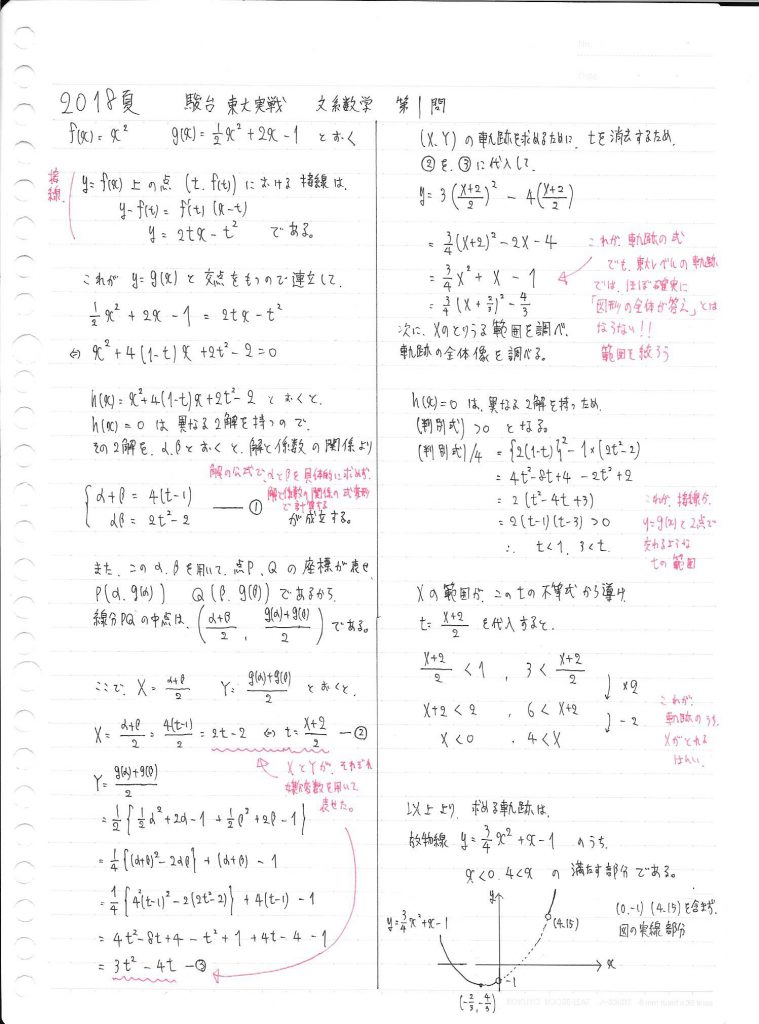 2018夏 駿台 東大実戦 文系数学 第1問
f(x)=x² g(x)=½x²+2x-1 とおく
接線
y=f(x) 上の点 (t, f(t)) における接線は、
y-f(t)=f'(t)(x-t)
y = 2tx-t² である。
これが y=g(x) と交点をもつので連立して、
½x²+2x-1 = 2tx-t²
⇔ x²+4(1-t)x+2t²-2=0
h(x)=x²+4(1-t)x+2t²-2 とおくと、
h(x)=0 は異なる2解を持つので、
その2解を、α,βとおくと、解と係数の関係より
解の公式で、αとβを具体的に求めず、
解と係数の関係の式変形
で計算する
{α+β = 4(t-1)
αβ = 2t²-2 ―① が成立する。
また、このα、βを用いて、点P、Qの座標が表せ、
P(α, g(α)) Q(β, g(β)) であるから、
線分PQの中点は、((α+β)/2, (g(α)+g(β))/2) である。
ここで、X=(α+β)/2 Y=(g(α)+g(β))/2 とおくと、
X=(α+β)/2=4(t-1)/2=2t-2 ⇔ t=(X+2)/2 ―②
XとYが、それぞれ
媒介変数を用いて
表せた。
Y=(g(α)+g(β))/2
=½{½α²+2α-1+½β²+2β-1}
=¼{(α+β)²-2αβ}+(α+β)-1
=¼{4²(t-1)²-2(2t²-2)}+4(t-1)-1
=4t²-8t+4-t²+1+4t-4-1
=3t²-4t ―③
(X,Y) の軌跡を求めるために、tを消去するため、
②を、③に代入して、
y=3((X+2)/2)²-4((X+2)/2)
=¾(X+2)²-2X-4
=¾X²+X-1
=¾(X+⅔)²-4/3
これが、軌跡の式
でも、東大レベルの軌跡
では、ほぼ確実に
「図形の全体が答え」とは
ならない!!
範囲を絞ろう
次に、Xのとりうる範囲を調べ、
軌跡の全体像を調べる。
h(x)=0 は、異なる2解を持つため、
(判別式)>0 となる。
(判別式)/4 = {2(1-t)}²-1×(2t²-2)
= 4t²-8t+4-2t²+2
= 2(t²-4t+3)
=2(t-1)(t-3)>0
∴ t<1, 3<t.
これが、接線が、
y=g(x)と2点で
交わるような
tの範囲
Xの範囲が、このtの不等式から導け、
t=(X+2)/2 を代入すると、
(X+2)/2 < 1 , 3 < (X+2)/2
×2
X+2<2 , 6<X+2
-2
X<0 , 4<X
これが、
軌跡のうち、
Xがとれる
はんい、
以上より、求める軌跡は、
放物線 y=¾x²+x-1 のうち、
x<0, 4<x の満たす部分である。
y
y=¾x²+x-1
(4,15)
(0,-1) (4,15)を含まず、
図の実線部分
x
-1
(-⅔,-4/3)